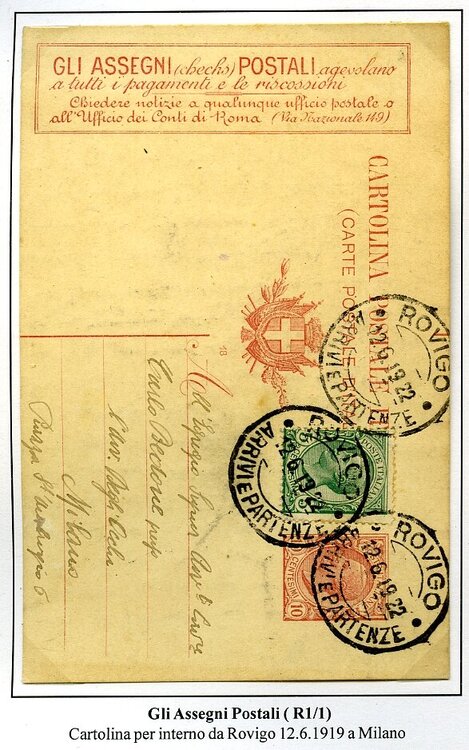 GLI ASSEGNI (checks) POSTALI agevolano
a tutti i pagamenti e le riscossioni
Chiedere notizie a qualunque ufficio postale o
all'Ufficio dei Conti di Roma (Via Nazionale 149)
CARTOLINA POSTALE
(CARTE POSTALE
18
ROVIGO
12.6.19.22
ARRIVI E PARTENZE
POSTE ITALIANE
ROVIGO
12.6.19.22
ARRIVI E PARTENZE
CENTESIMI
10
ROVIGO
12.6.19.22
ARRIVI E PARTENZE
Milano
Piazza S. Ambrogio 6
Gli Assegni Postali ( R1/1)
Cartolina per interno da Rovigo 12.6.1919 a Milano